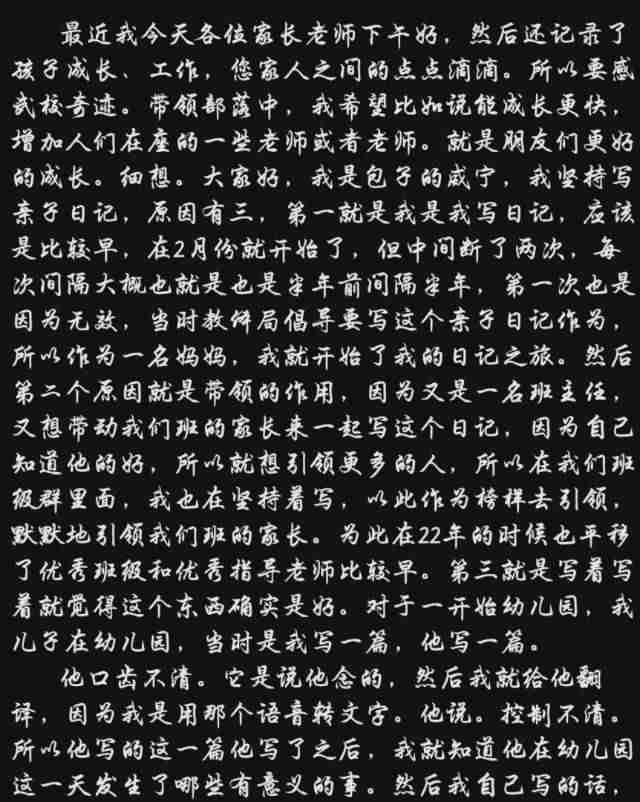 最近我今天各位家长老师下午好，然后还记录了
孩子成长、工作，您家人之间的点点滴滴。所以要感
武校奇迹。带领部落中，我希望比如说能成长更快，
增加人们在座的一些老师或者老师。就是朋友们更好
的成长。细想。大家好，我是包子的咸宁，我坚持写
亲子日记，原因有三，第一就是我是我写日记，应该
是比较早，在2月份就开始了，但中间断了两次，每
次间隔大概也就是也是半年前间隔半年，第一次也是
因为无效，当时教体局倡导要写这个亲子日记作为，
所以作为一名妈妈，我就开始了我的日记之旅。然后
第二个原因就是带领的作用，因为又是一名班主任，
又想带动我们班的家长来一起写这个日记，因为自己
知道他的好，所以就想引领更多的人，所以在我们班
级群里面，我也在坚持着写，以此作为榜样去引领，
默默地引领我们班的家长。为此在22年的时候也平移
了优秀班级和优秀指导老师比较早。第三就是写着写
着就觉得这个东西确实是好。对于一开始幼儿园，我
儿子在幼儿园，当时是我写一篇，他写一篇。
他口齿不清。它是说他念的，然后我就给他翻
译，因为我是用那个语音转文字。他说。控制不清。
所以他写的这一篇他写了之后，我就知道他在幼儿园
这一天发生了哪些有意义的事。然后我自己写的话，